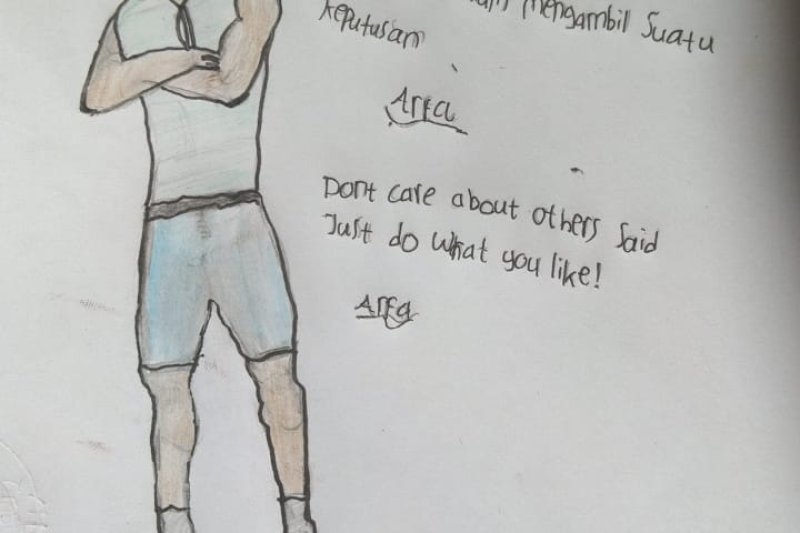 mengambil suatu
keputusan
Arfa
Dont care about others said
Just do what you like!
Arfa